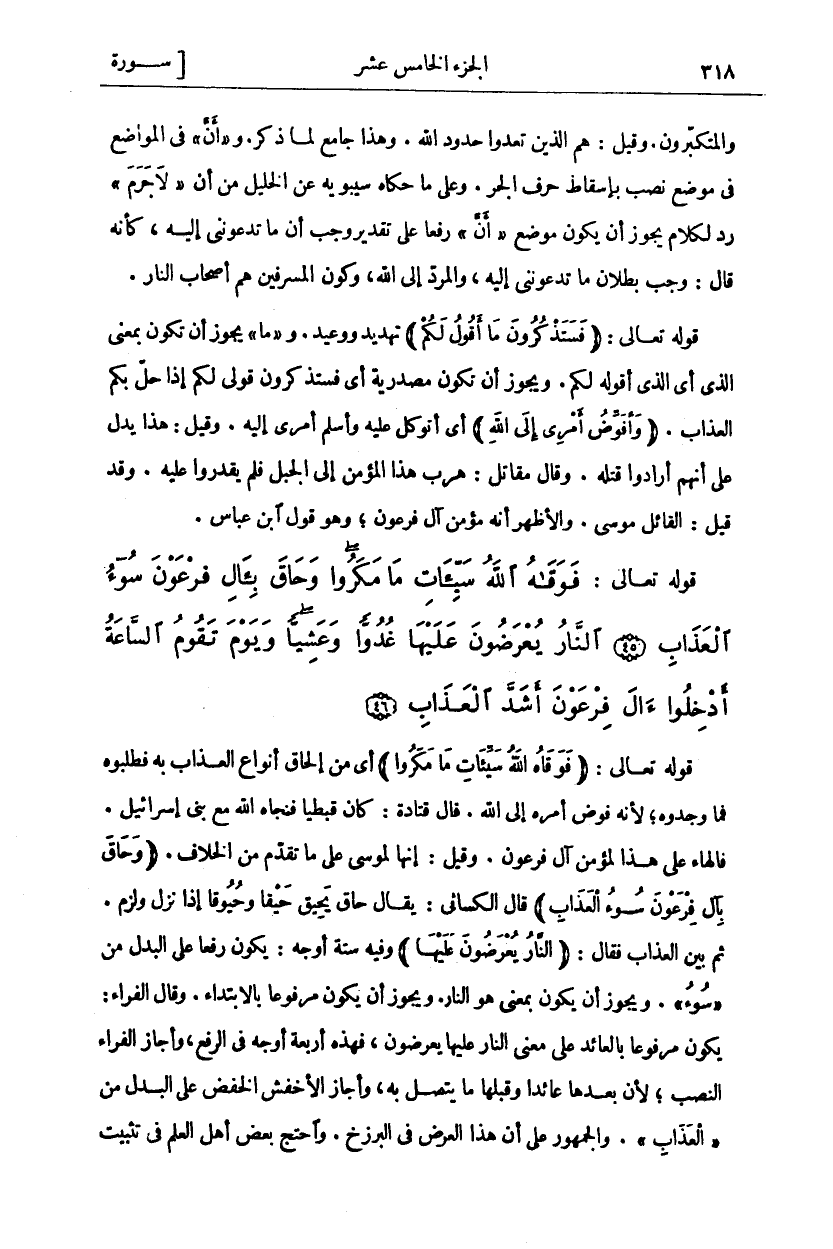 ٣١٨ الجزء الخامس عشر [ ســورة
والمتكبّرون. وقيل : هم الذين تعدوا حدود الله . وهذا جامع لما ذكر. و «أَنَّ» فى المواضع
فى موضع نصب بإسقاط حرف الجر . وعلى ما حكاه سيبويه عن الخليل من أن « لَاجَرَمَ »
رد لكلام يجوز أن يكون موضع « أَنَّ » رفعا على تقدير وجب أن ما تدعوننى إليــه ، كأنه
قال : وجب بطلان ما تدعوننى إليه ، والمردّ إلى الله ، وكون المسرفين هم أصحاب النار .
قوله تعــالى : ﴿ فَسَتَذْكُرُونَ مَا أَقُولُ لَكُمْ ﴾ تهديد ووعيد . و «ما» يجوز أن تكون بمعنى
الذى أى الذى أقوله لكم . ويجوز أن تكون مصدرية أى فستذكرون قولى لكم إذا حلّ بكم
العذاب . ﴿ وَأُفَوِّضُ أَمْرِى إِلَى اللهِ ﴾ أى أتوكل عليه وأسلم أمرى إليه . وقيل : هذا يدل
على أنهم أرادوا قتله . وقال مقاتل : هرب هذا المؤمن إلى الجبل فلم يقدروا عليه . وقد
قيل : القائل موسى . والأظهر أنه مؤمن آل فرعون ؛ وهو قول آبن عباس .
قوله تعــالى : فَوَقَىٰهُ ٱللَّهُ سَيِّـَٔاتِ مَا مَكَرُوا۟ ۖ وَحَاقَ بِـَٔالِ فِرْعَوْنَ سُوٓءُ
ٱلْعَذَابِ ﴿٤٥﴾ ٱلنَّارُ يُعْرَضُونَ عَلَيْهَا غُدُوًّا وَعَشِيًّا ۖ وَيَوْمَ تَقُومُ ٱلسَّاعَةُ
أَدْخِلُوٓا۟ ءَالَ فِرْعَوْنَ أَشَدَّ ٱلْعَـذَابِ ﴿٤٦﴾
قوله تعــالى : ﴿ فَوَقَاهُ اللهُ سَيِّئَاتِ مَا مَكَرُوا ﴾ أى من إلحاق أنواع العــذاب به فطلبوه
فما وجدوه ؛ لأنه فوض أمره إلى الله . قال قتادة : كان قبطيا فنجاه الله مع بنى إسرائيل .
فالهاء على هــذا لمؤمن آل فرعون . وقيل : إنها لموسى على ما تقدّم من الخلاف . ﴿ وَحَاقَ
بِآلِ فِرْعَوْنَ سُــوءُ الْعَذَابِ ﴾ قال الكسائى : يقــال حاق يَحِيق حَيْقا وحُيُوقا إذا نزل ولزم .
ثم بين العذاب فقال : ﴿ النَّارُ يُعْرَضُونَ عَلَيْهَــا ﴾ وفيه ستة أوجه : يكون رفعا على البدل من
«سُوءُ» . ويجوز أن يكون بمعنى هو النار. ويجوز أن يكون مرفوعا بالابتداء . وقال الفراء :
يكون مرفوعا بالعائد على معنى النار عليها يعرضون ، فهذه أربعة أوجه فى الرفع ، وأجاز الفراء
النصب ؛ لأن بعــدها عائدا وقبلها ما يتصــل به ، وأجاز الأخفش الخفض على البــدل من
« الْعَذَابِ » . والجمهور على أن هذا العرض فى البرزخ . وآحتج بعض أهل العلم فى تثبيت